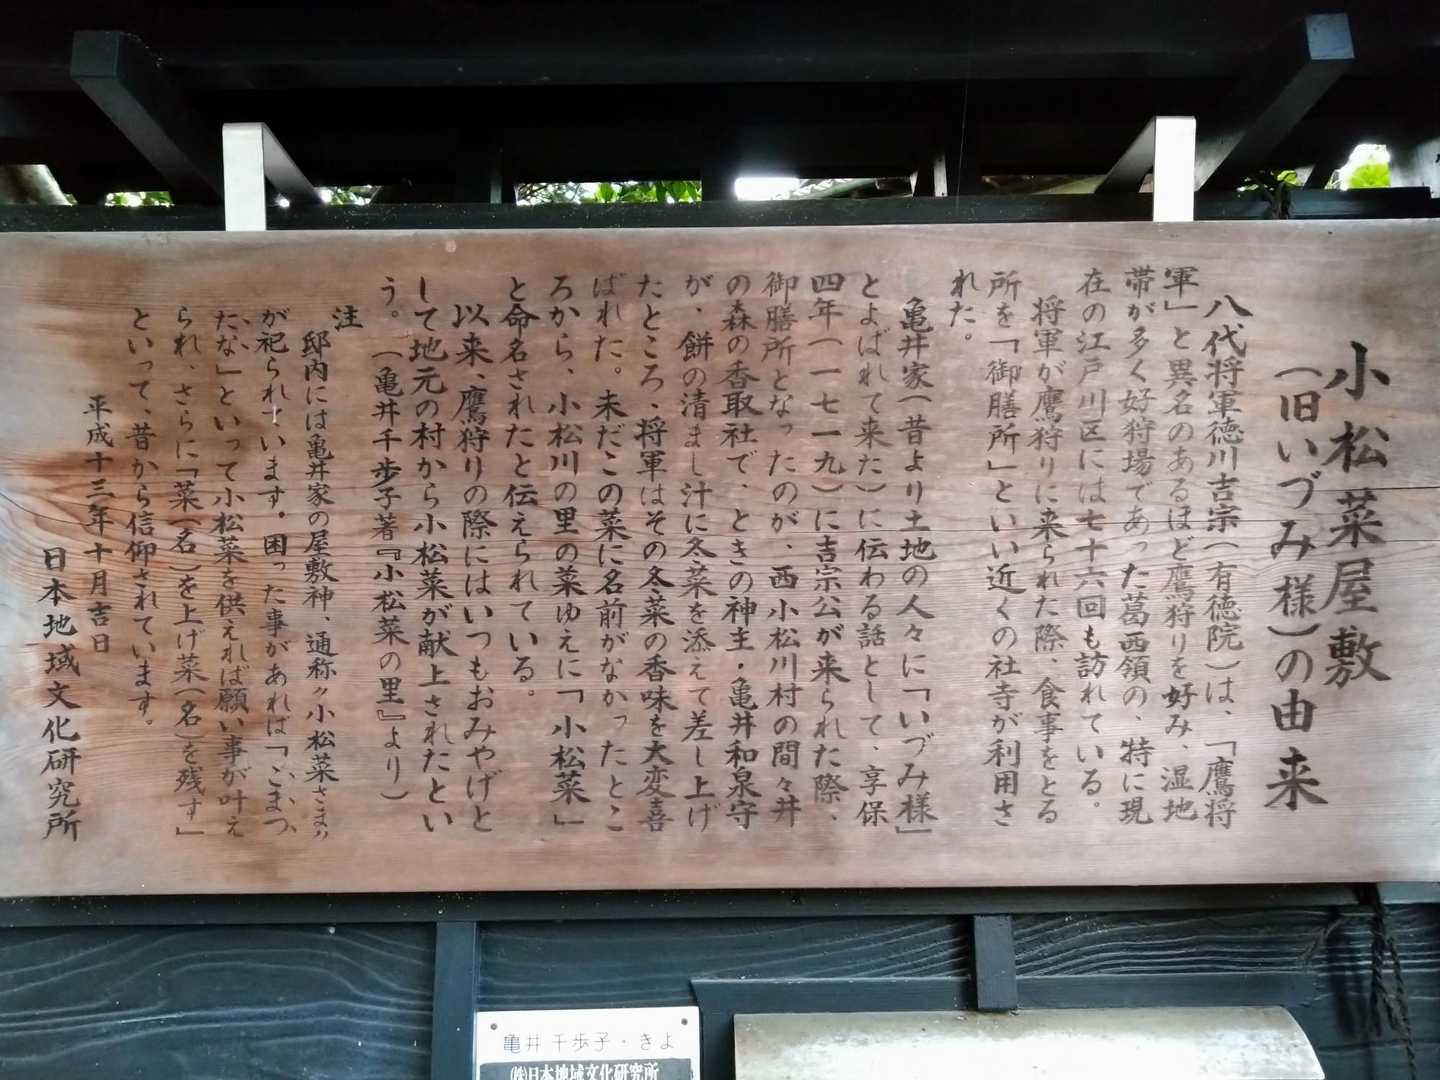 小松菜屋敷
（旧いづみ様）の由来
八代将軍徳川吉宗（有徳院）は、「鷹将
軍」と異名のあるほど鷹狩りを好み、湿地
帯が多く好狩場であった葛西領の、特に現
在の江戸川区には七十六回も訪れている。
将軍が鷹狩りに来られた際、食事をとる
所を「御膳所」といい近くの社寺が利用さ
れた。
亀井家（昔より土地の人々に「いづみ様」
とよばれて来た）に伝わる話として、享保
四年（一七一九）に吉宗公が来られた際、
御膳所となったのが、西小松川村の間々井
の森の香取社で、ときの神主・亀井和泉守
が、餅の清まし汁に冬菜を添えて差し上げ
たところ、将軍はその冬菜の香味を大変喜
ばれた。未だこの菜に名前がなかったとこ
ろから、小松川の里の菜ゆえに「小松菜」
と命名されたと伝えられている。
以来、鷹狩りの際にはいつもおみやげと
して地元の村から小松菜が献上されたとい
う。（亀井千歩子著『小松菜の里』より）
注
邸内には亀井家の屋敷神、通称〃小松菜さま〃
が祀られています。困った事があれば「こまつ
たな」といって小松菜を供えれば願い事が叶え
られ、さらに「菜（名）を上げ菜（名）を残す」
といって、昔から信仰されています。
平成十三年十月吉日
日本地域文化研究所
亀井 千歩子・きよ
(株)日本地域文化研究所